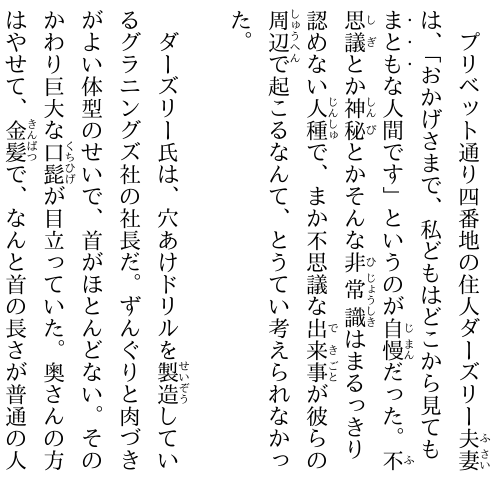 プリベット通り四番地の住人ダーズリー夫妻
は、「おかげさまで、私どもはどこから見ても
まともな人間です」というのが自慢だった。不
思議とか神秘とかそんな非常識はまるっきり
認めない人種で、まか不思議な出来事が彼らの
周辺で起こるなんて、とうてい考えられなかっ
た。
ダーズリー氏は、穴あけドリルを製造してい
るグラニングズ社の社長だ。ずんぐりと肉づき
がよい体型のせいで、首がほとんどない。その
かわり巨大な口髭が目立っていた。奥さんの方
はやせて、金髪で、なんと首の長さが普通の人